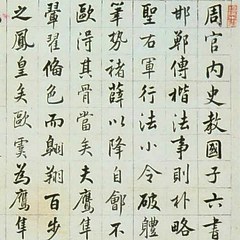 周官内史教國子六書
邯鄲傳楷法事則朴略
聖右軍行法小令破體
筆勢褚薛以降自鄶不
歐淂其骨當矣夫鷹隼
翬翟俻色而翺翔百步
之鳳皇矣歐虞為鷹隼